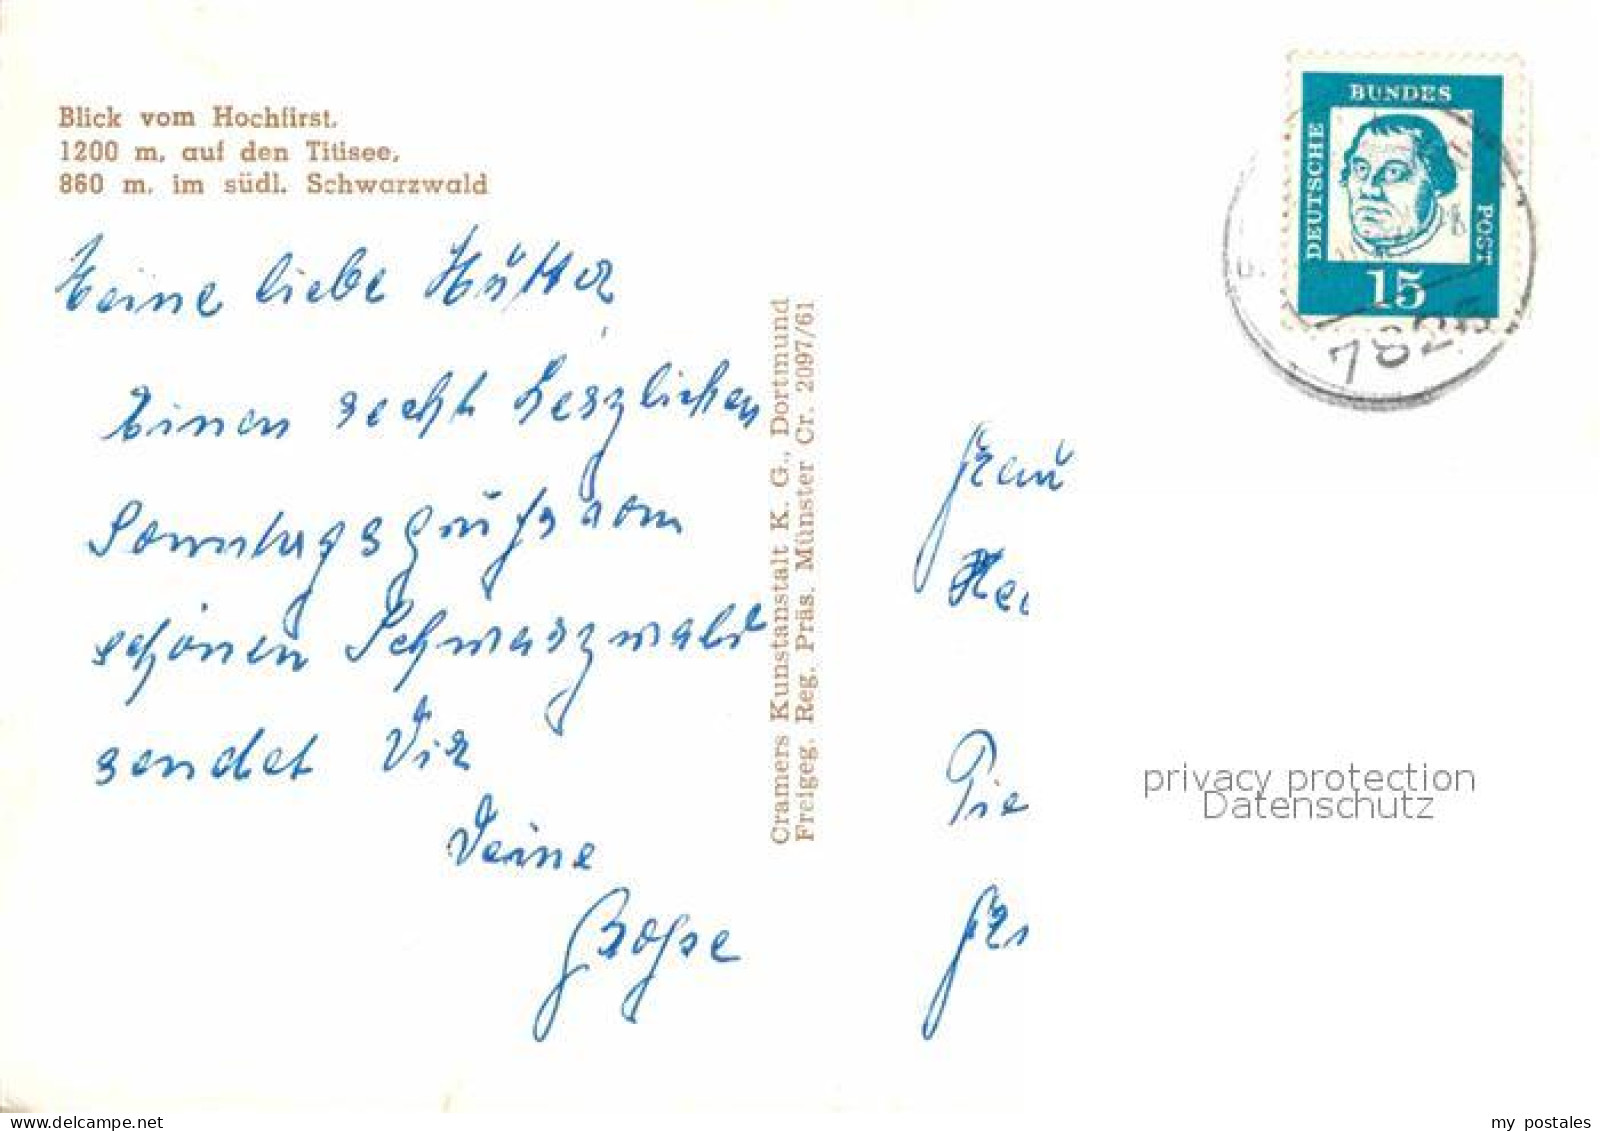 Blick vom Hochfirst,
1200 m, auf den Titisee,
860 m, im südl. Schwarzwald
Meine liebe Mutter
Einen recht herzlichen
Sonntagsgruß vom
schönen Schwarzwald
sendet Dir
Deine
Cramers Kunstanstalt K. G., Dortmund
Freigeg. Reg. Präs. Münster Cr. 2097/61
DEUTSCHE
BUNDES
POST
15
Frau
privacy protection
Datenschutz
akpool.com
my postales